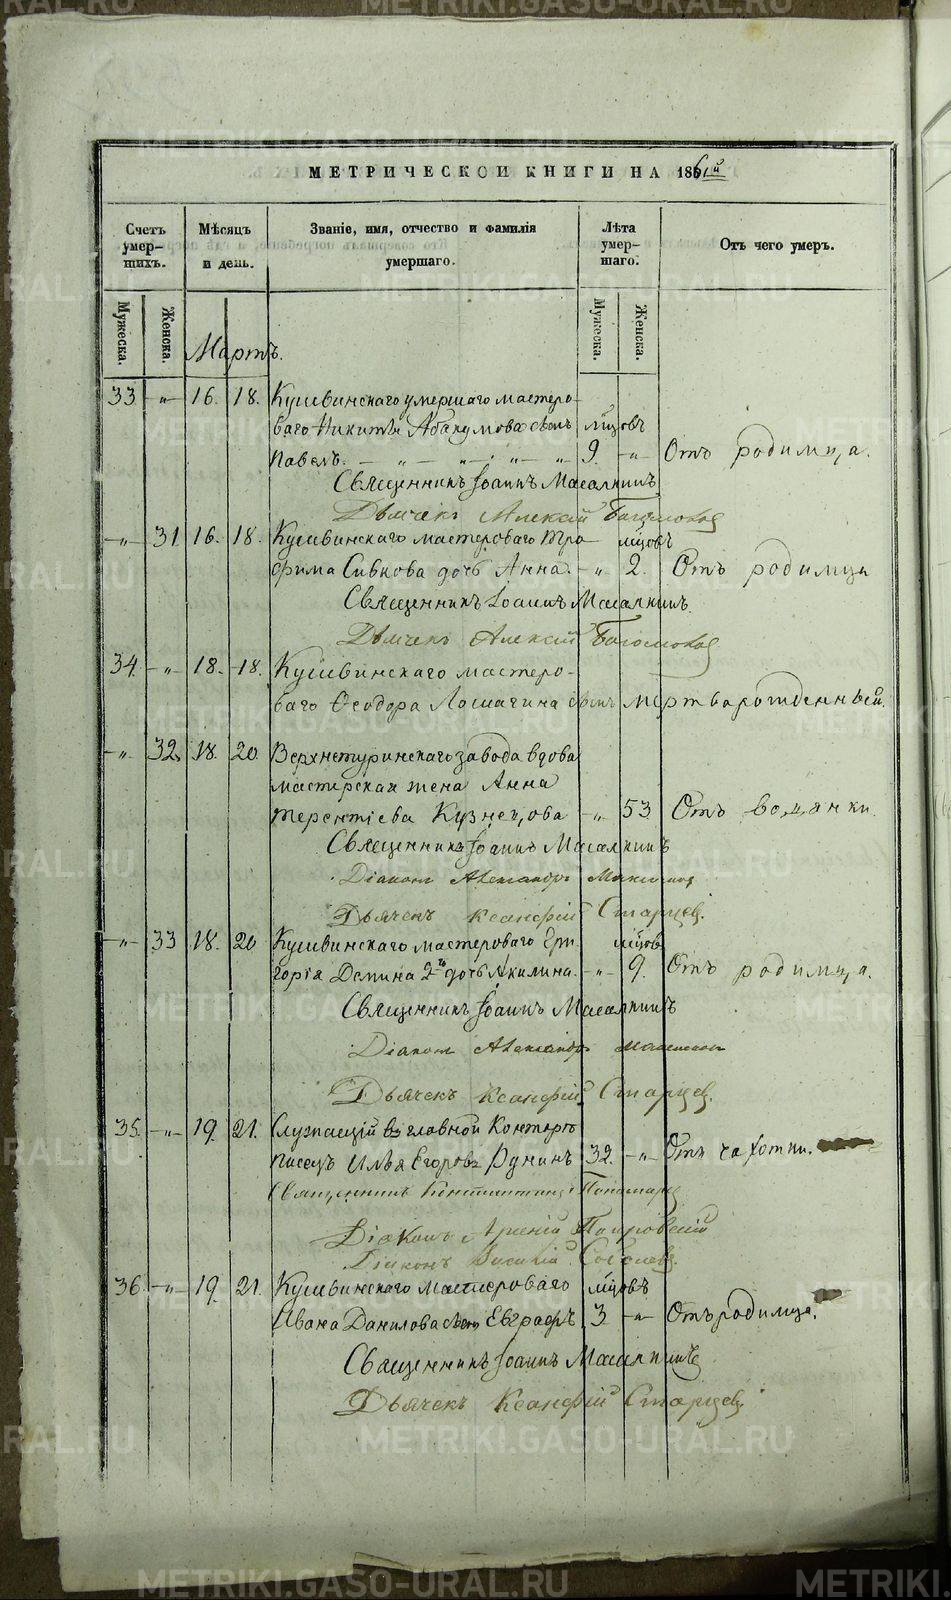 МЕТРИЧЕСКОЙ КНИГИ НА 1861й
Счетъ умер-шихъ.
Мѣсяцъ и день.
Званіе, имя, отчество и фамилія умершаго.
Лѣта умер-шаго.
Отъ чего умеръ.
Мужеска.
Женска.
Мужеска.
Женска.
Мартъ.
33 -„- 16. 18. Кушвинскаго умершаго мастеро-
ваго Никиты Абакумова сынъ м҃цовъ
Павелъ. — „ — „ — „ — „ 9. -„- Отъ родимца.
Священникъ Іоаннъ Масалкинъ
Дьячекъ Алексій Богомолов
-„- 31 16. 18. Кушвинскаго мастероваго Тро- м҃цовъ
фима Сивкова дочь Анна. -„- 2. Отъ родимца
Священникъ Іоаннъ Масалкинъ.
Дьячекъ Алексій Богомолов
34. -„- 18. 18. Кушвинскаго мастеро-
ваго Ѳеодора Лошагина сынъ мертварожденный.
-„- 32. 18. 20. Верхнетуринскаго завода вдова
мастерская жена Анна
Терентіева Кузнецова -„- 53 Отъ водянки.
Священникъ Іоаннъ Масалкинъ
Діаконъ Александръ
Дьячекъ Ксанфій Старцев.
-„- 33 18. 20 Кушвинскаго мастероваго Гри- м҃цов
горія Демина 2го дочь Акилина. -„- 9. Отъ родимца.
Священникъ Іоаннъ Масалкинъ
Діаконъ Александръ
Дьячекъ Ксанфій Старцев.
35. -„- 19. 21. Служащій въ главной Конторѣ
писецъ Илья Егоровъ Рунинъ 32. -„- Отъ чахотки.
Священникъ Константинъ Пономарев
Діаконъ Арсеній Покровскій
Діаконъ Василій Соболев.
36. -„- 19. 21. Кушвинскаго мастероваго м҃цовъ
Ивана Данилова сынъ Евграфъ 3 -„- Отъ родимца.
Священникъ Іоаннъ Масалкинъ
Дьячекъ Ксанфій Старцев.
METRIKI.GASO-URAL.RU